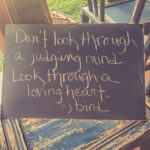 Don't look through
a judging mind.
Look through a
loving heart.
-jbird